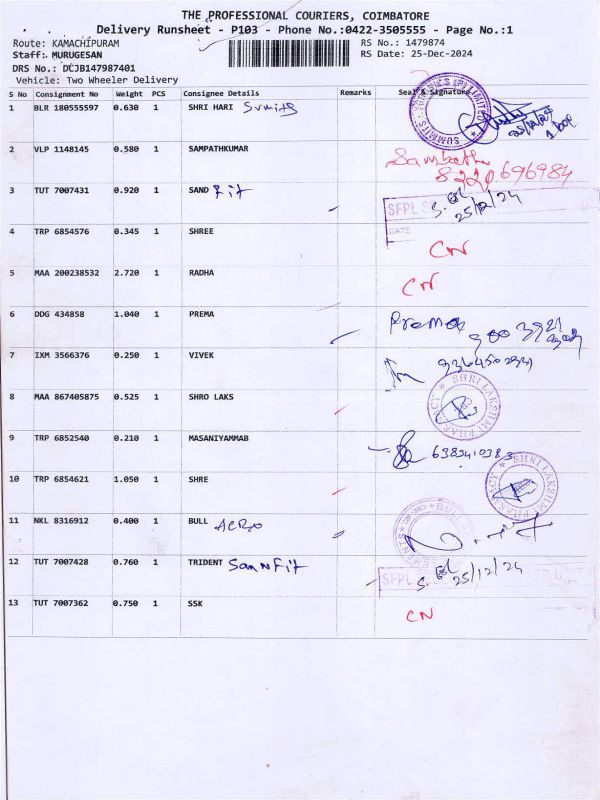 THE PROFESSIONAL COURIERS, COIMBATORE
Delivery Runsheet - P103 - Phone No.:0422-3505555 - Page No.:1
Route: KAMACHIPURAM RS No.: 1479874
Staff: MURUGESAN RS Date: 25-Dec-2024
DRS No.: DCJB147987401
Vehicle: Two Wheeler Delivery
S No Consignment No Weight PCS Consignee Details Remarks Seal & Signature
1 BLR 180555597 0.630 1 SHRI HARI
2 VLP 1148145 0.580 1 SAMPATHKUMAR Sambath
8220696984
3 TUT 7007431 0.920 1 SAND Fit SFPL
25/12/24
DATE
4 TRP 6854576 0.345 1 SHREE CN
5 MAA 200238532 2.720 1 RADHA CN
6 DDG 434858 1.040 1 PREMA Prema
7 IXM 3566376 0.250 1 VIVEK
8 MAA 867405875 0.525 1 SHRO LAKS SHRI LAKSHMI PHARMACY
9 TRP 6852540 0.210 1 MASANIYAMMAB
10 TRP 6854621 1.050 1 SHRE SHRI LAKSHMI PHARMACY
11 NKL 8316912 0.400 1 BULL AGRO
12 TUT 7007428 0.760 1 TRIDENT SFPL 25/12/24
13 TUT 7007362 0.750 1 SSK CN